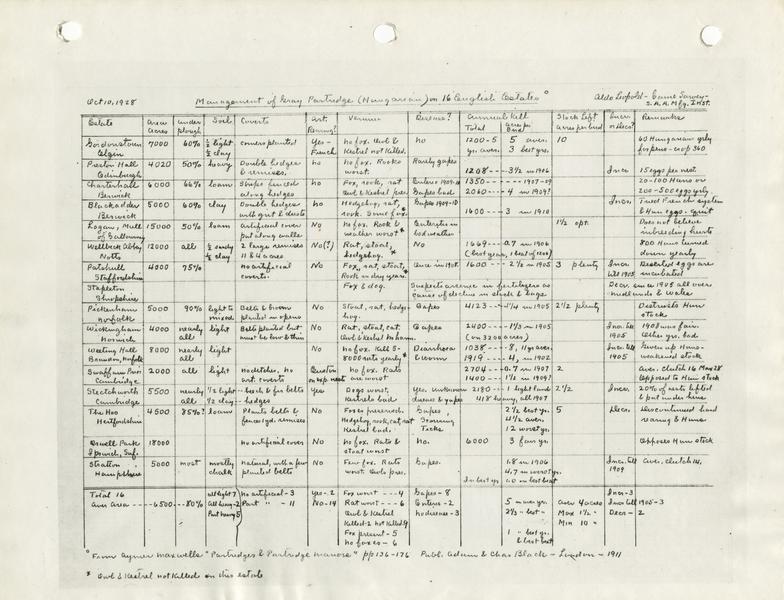 Oct 10, 1928
Management of Gray Partridge (Hungarian) on 16 English Estates °
Aldo Leopold - Game Survey -
S.A.A. Mfg. Inst.
Estate Area Acres under plough Soil Coverts Art. Rearing? Vermin Disease? Annual Kill Total Acres per Bird Stock Left Acres per bird Incr. or Decr.? Remarks
Gordonstoun Elgin 7000 60% ½ light ½ clay conifers planted Yes - French No fox. Owl & Kestrel not killed. no 1200-5 yrs. aver. 5 aver. 3 best yrs. 10 60 Hungarian yrly
Preston Hall Edinburgh 4020 50% heavy Double hedges & remises. no No fox. Rooks worst. Rarely gapes 1208 --- 3½ in 1906 Incr. 15 eggs per nest
Charterhall Berwick 6000 66% loam Strips fenced along hedges no Fox, rook, rat Owl & Kestrel pres. Enteric 1909-10 Gapes bad 1350 --- 1907-09 2060 --- 4 in 1909? 20-100 Huns or 200-500 eggs yrly.
Blackadder Berwick 5000 60% clay Double hedges no Hedgehog, rat, rook. Some fox. Gapes 1909-10 1600 --- 3 in 1910 Incr. Tried French system & Hun eggs - quit
Logan, Mull of Galloway 15000 50% loam Artificial cover No No fox. Rook & weather worst * 1½ opt. Does not believe inbreeding hurts
Wellbeck Abbey, Notts 12000 all ½ sandy ½ clay 2 large remises 11 & 4 acres No(?) Rat, stoat, hedgehog. * No 1669 --- 0.7 in 1906 800 Huns turned down yearly
Patshull Staffordshire 4000 75% no artificial coverts. No Fox, rat, stoat, Rook in dry years. Once in 1905. 1600 --- 2½ in 1905 3 plenty Incr. till 1905 Deserted eggs are incubated
Stapleton Shropshire Fox & dog. Suspects arsenic in fertilizers as cause of decline in stock & bags. Decr. since 1905 all over midlands & Wales
Pickenham Norfolk 5000 90% light to mixed Belts & broom planted in opens No Stoat, rat, hedgehog. Gapes 4123 --- 1¼ in 1905 2½ plenty Distrusts Hun stock
Wickingham Norwich 4000 nearly all light Belts planted but must be low & thin No Rat, stoat, cat. Owl & Kestrel no harm. Gapes 2400 --- 1⅓ in 1905 (on 3200 acres) Incr. till 1908 was fair. Other yrs. bad
Weeting Hall Brandon, Norfolk 8000 nearly all light No No fox. Kill 5-8000 rats yearly. * Diarrhoea & worm 1038 --- 8, 11 yr. aver. 1919 --- 4, in 1902 Incr. till 1905 Given up Huns - weakened stock
Swaffham Prior Cambridge 2000 all light No ditches, no art. coverts No fox. Rats are worst 2704 --- 0.7 in 1907 1400 --- 1½ in 1909? 2 Aver. clutch 16 Opposed to Hun stock
Stetchworth Cambridge 5500 nearly all ½ light ½ clay Yes Dogs worst. Kestrels bad 2180 --- 1 light land 418 heavy, all 1907 2½ Incr. 20% of nests & put under hens
The Hoo Hertfordshire 4500 85%? loam Plants belts & fences gd. remises No Foxes preserved. Hedgehog, rook, cat, rat Kestrel bad. Gapes, Ticks 2½ best yr. 4½ aver. 12 worst yr. 5 Decr. Discontinued hand rearing & Huns
Orwell Park Ipswich, Suf. 18000 no artificial cover No No fox. Rats & stoat worst No. 6000 3 fair yr. Opposes Hun stock
Stratton Hampshire 5000 most mostly chalk natural, with a few planted belts No Few fox. Rats worst. Owls pres. Gapes. 1.8 in 1906 4.7 in worst yr. In best yr. Incr. till 1909 Aver. clutch 14.
Total 16 all light 7 All heavy - 2 Part heavy 5 No artificial - 3 Part " - 11 Yes - 2 No - 14 Fox worst --- 4 Rat worst --- 6 Gapes - 8 Enteric - 2 No disease - 3 Incr - 3 Incr till 1905 - 3 Decr - 2
Aver Area --- 6500 -- 80% Owl & Kestrel Killed - 2 not killed 9 Fox present - 5 No foxes - 6 5 aver yr. 2⅓ - best - 1 - best yr. & best beat Aver 4 acres Max 1½ " Min 10 "
° From Aymer Maxwell's "Partridges & Partridge Manors" pp 136-176 Publ. Adam & Chas. Black - London - 1911
* Owl & Kestrel not killed on this estate